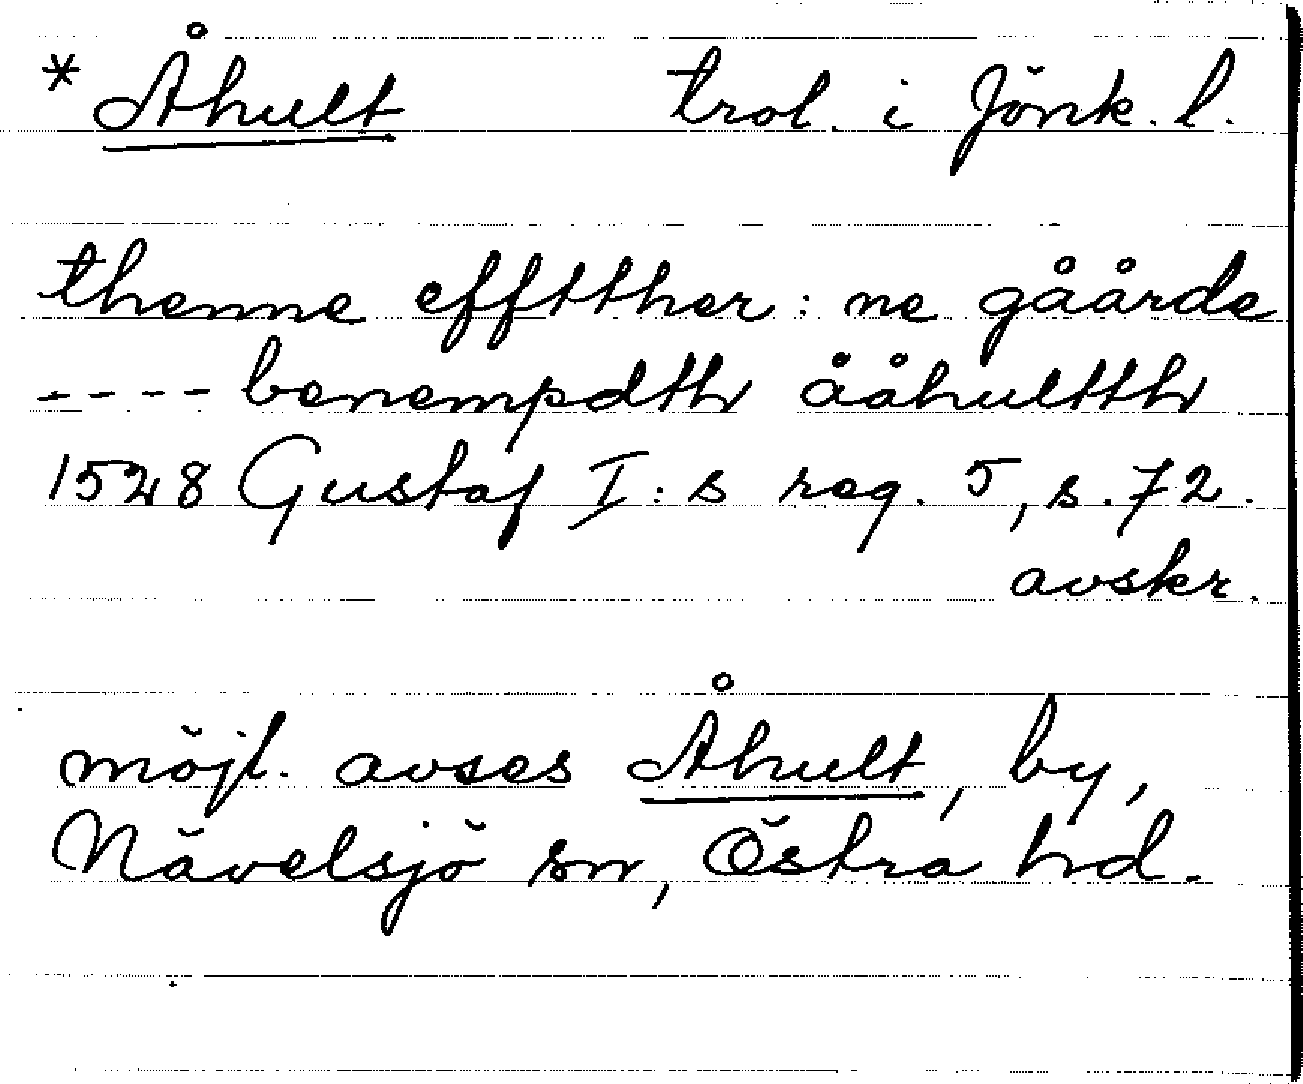 * Åhult trol. i Jönk. l.
thenne efftther: ne gåårde
---- benempdth ååhultth
1528 Gustaf I:s reg. 5, s. 72.
avskr.
möjl. avses Åhult, by,
Nävelsjö sn, Östra hd.